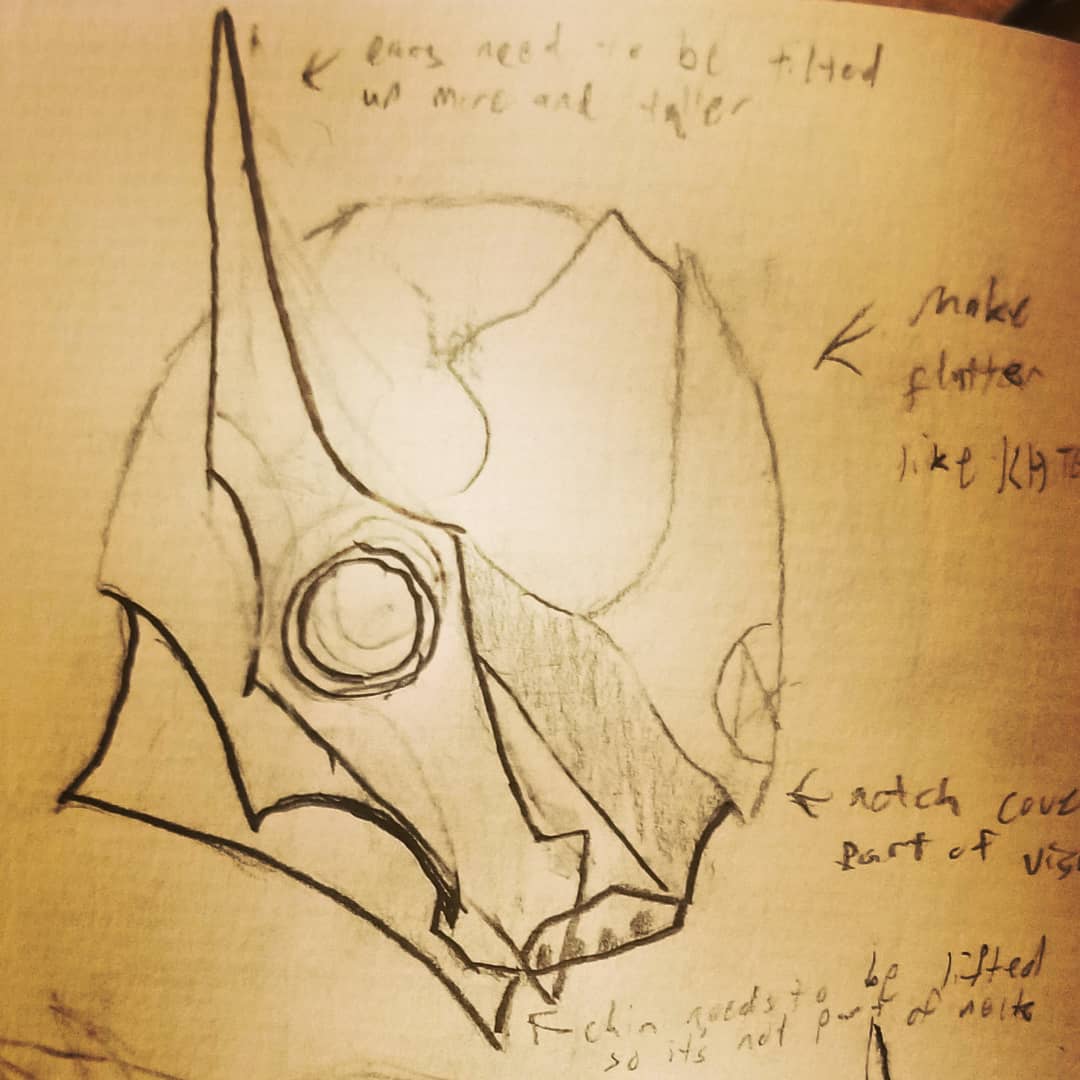 ears need to be tilted
up more and taller
make
flatter
like
notch
part of
chin needs to be lifted
so its not part of